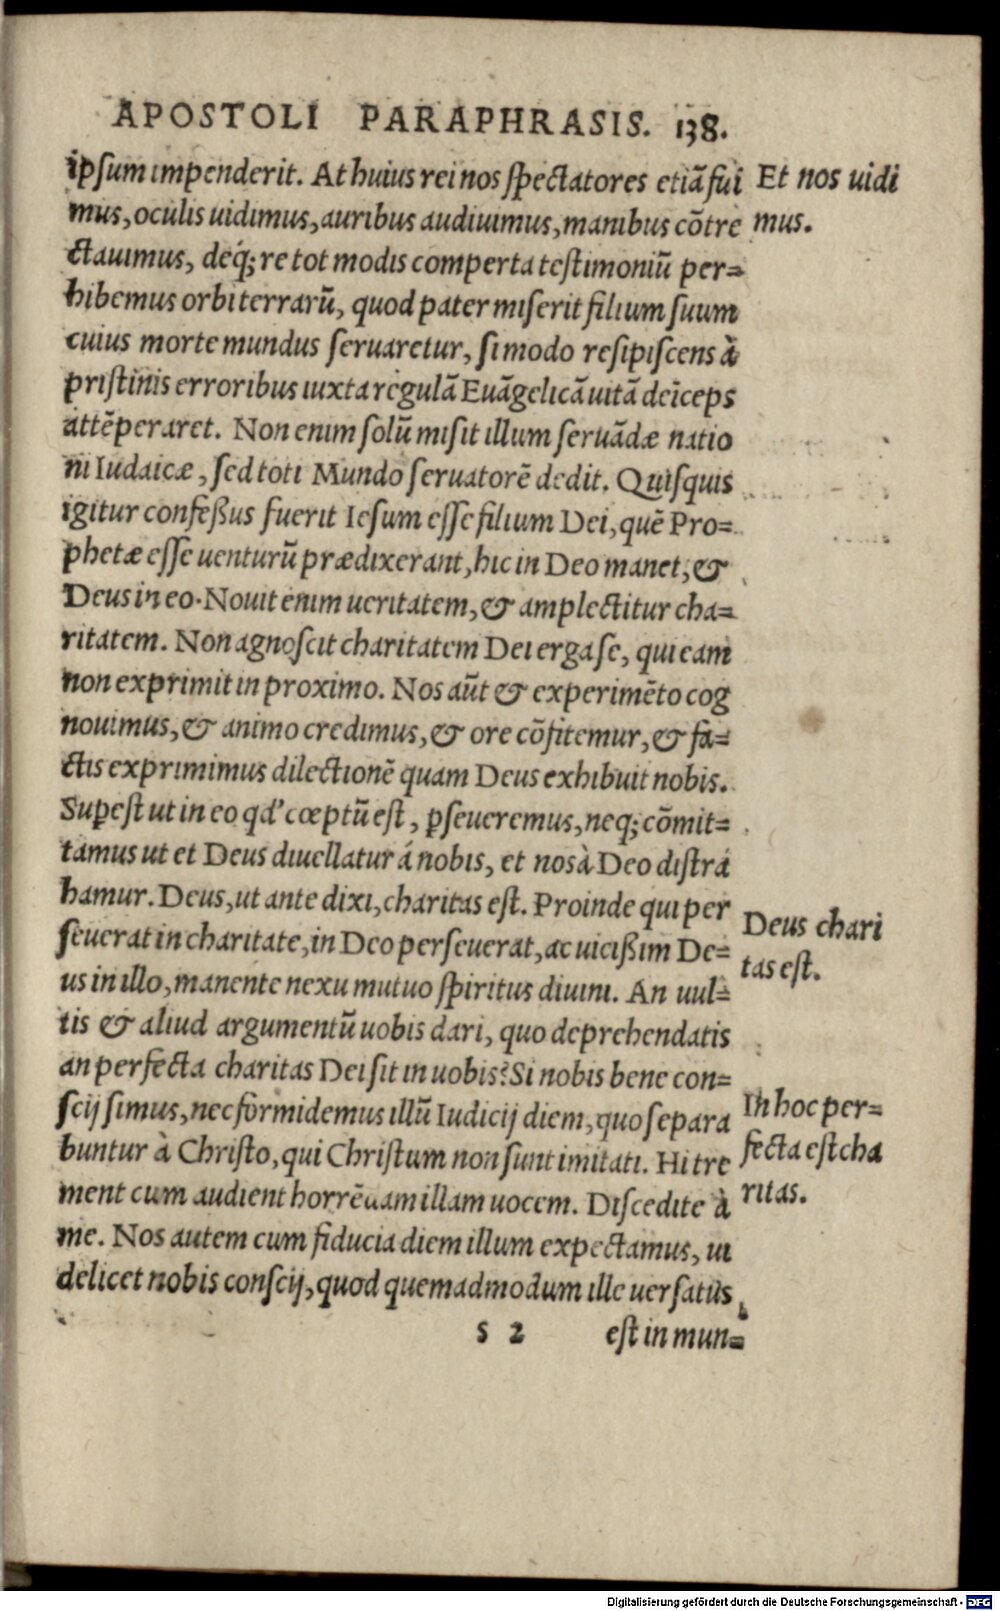 APOSTOLI PARAPHRASIS. 138.
ipsum impenderit. At huius rei nos spectatores etiã fui
Et nos uidi
mus, oculis uidimus, auribus audiuimus, manibus cõtre
mus.
ctauimus, deq́; re tot modis comperta testimoniũ per=
hibemus orbi terrarũ, quod pater miserit filium suum
cuius morte mundus seruaretur, si modo resipiscens à
pristinis erroribus iuxta regulã Euãgelicã uitã deĩceps
attẽperaret. Non enim solũ misit illum seruãdæ natio
ni Iudaicæ, sed toti Mundo seruatorẽ dedit. Quisquis
igitur confeßus fuerit Iesum esse filium Dei, quẽ Pro=
phetæ esse uenturũ prædixerant, hic in Deo manet, &
Deus in eo. Nouit enim ueritatem, & amplectitur cha=
ritatem. Non agnoscit charitatem Dei erga se, qui eam
non exprimit in proximo. Nos aũt & experimẽto cog
nouimus, & animo credimus, & ore cõfitemur, & fa=
ctis exprimimus dilectionẽ quam Deus exhibuit nobis.
Supest ut in eo qd' cœptũ est, pseueremus, neq; cõmit=
tamus ut et Deus diuellatur á nobis, et nos à Deo distra
hamur. Deus, ut ante dixi, charitas est. Proinde qui per
Deus chari
seuerat in charitate, in Deo perseuerat, ac uicißim De=
tas est.
us in illo, manente nexu mutuo spiritus diuini. An uul=
tis & aliud argumentũ uobis dari, quo deprehendatis
an perfecta charitas Dei sit in uobis? Si nobis bene con=
In hoc per=
scij simus, nec formidemus illũ Iudicij diem, quo separa
fecta est cha
buntur à Christo, qui Christum non sunt imitati. Hi tre
ritas.
ment cum audient horrẽdam illam uocem. Discedite à
me. Nos autem cum fiducia diem illum expectamus, ui
delicet nobis conscij, quod quemadmodum ille uersatus
s 2 est in mun=
Digitalisierung gefördert durch die Deutsche Forschungsgemeinschaft - DFG